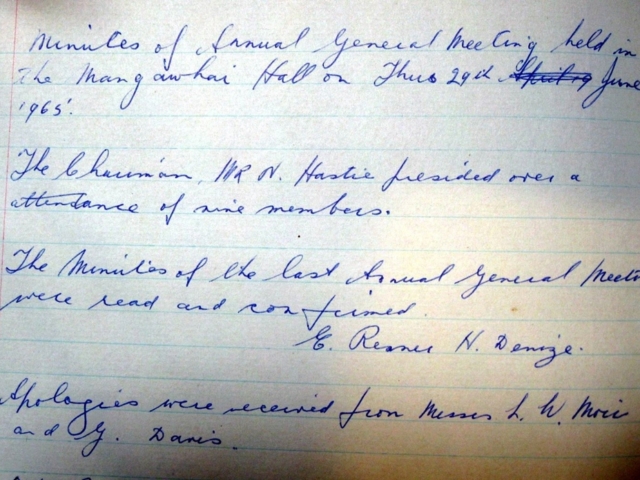 Minutes of Annual General Meeting held in
the Mangawhai Hall on Thurs 29th April 19 June
1965.
The Chairman, MR N. Hastie presided over a
attendance of nine members.
The Minutes of the last Annual General Meet
were read and confirmed.
E. H. Denize.
Apologies were received from Messrs L. W. Moir
and G. Davis.